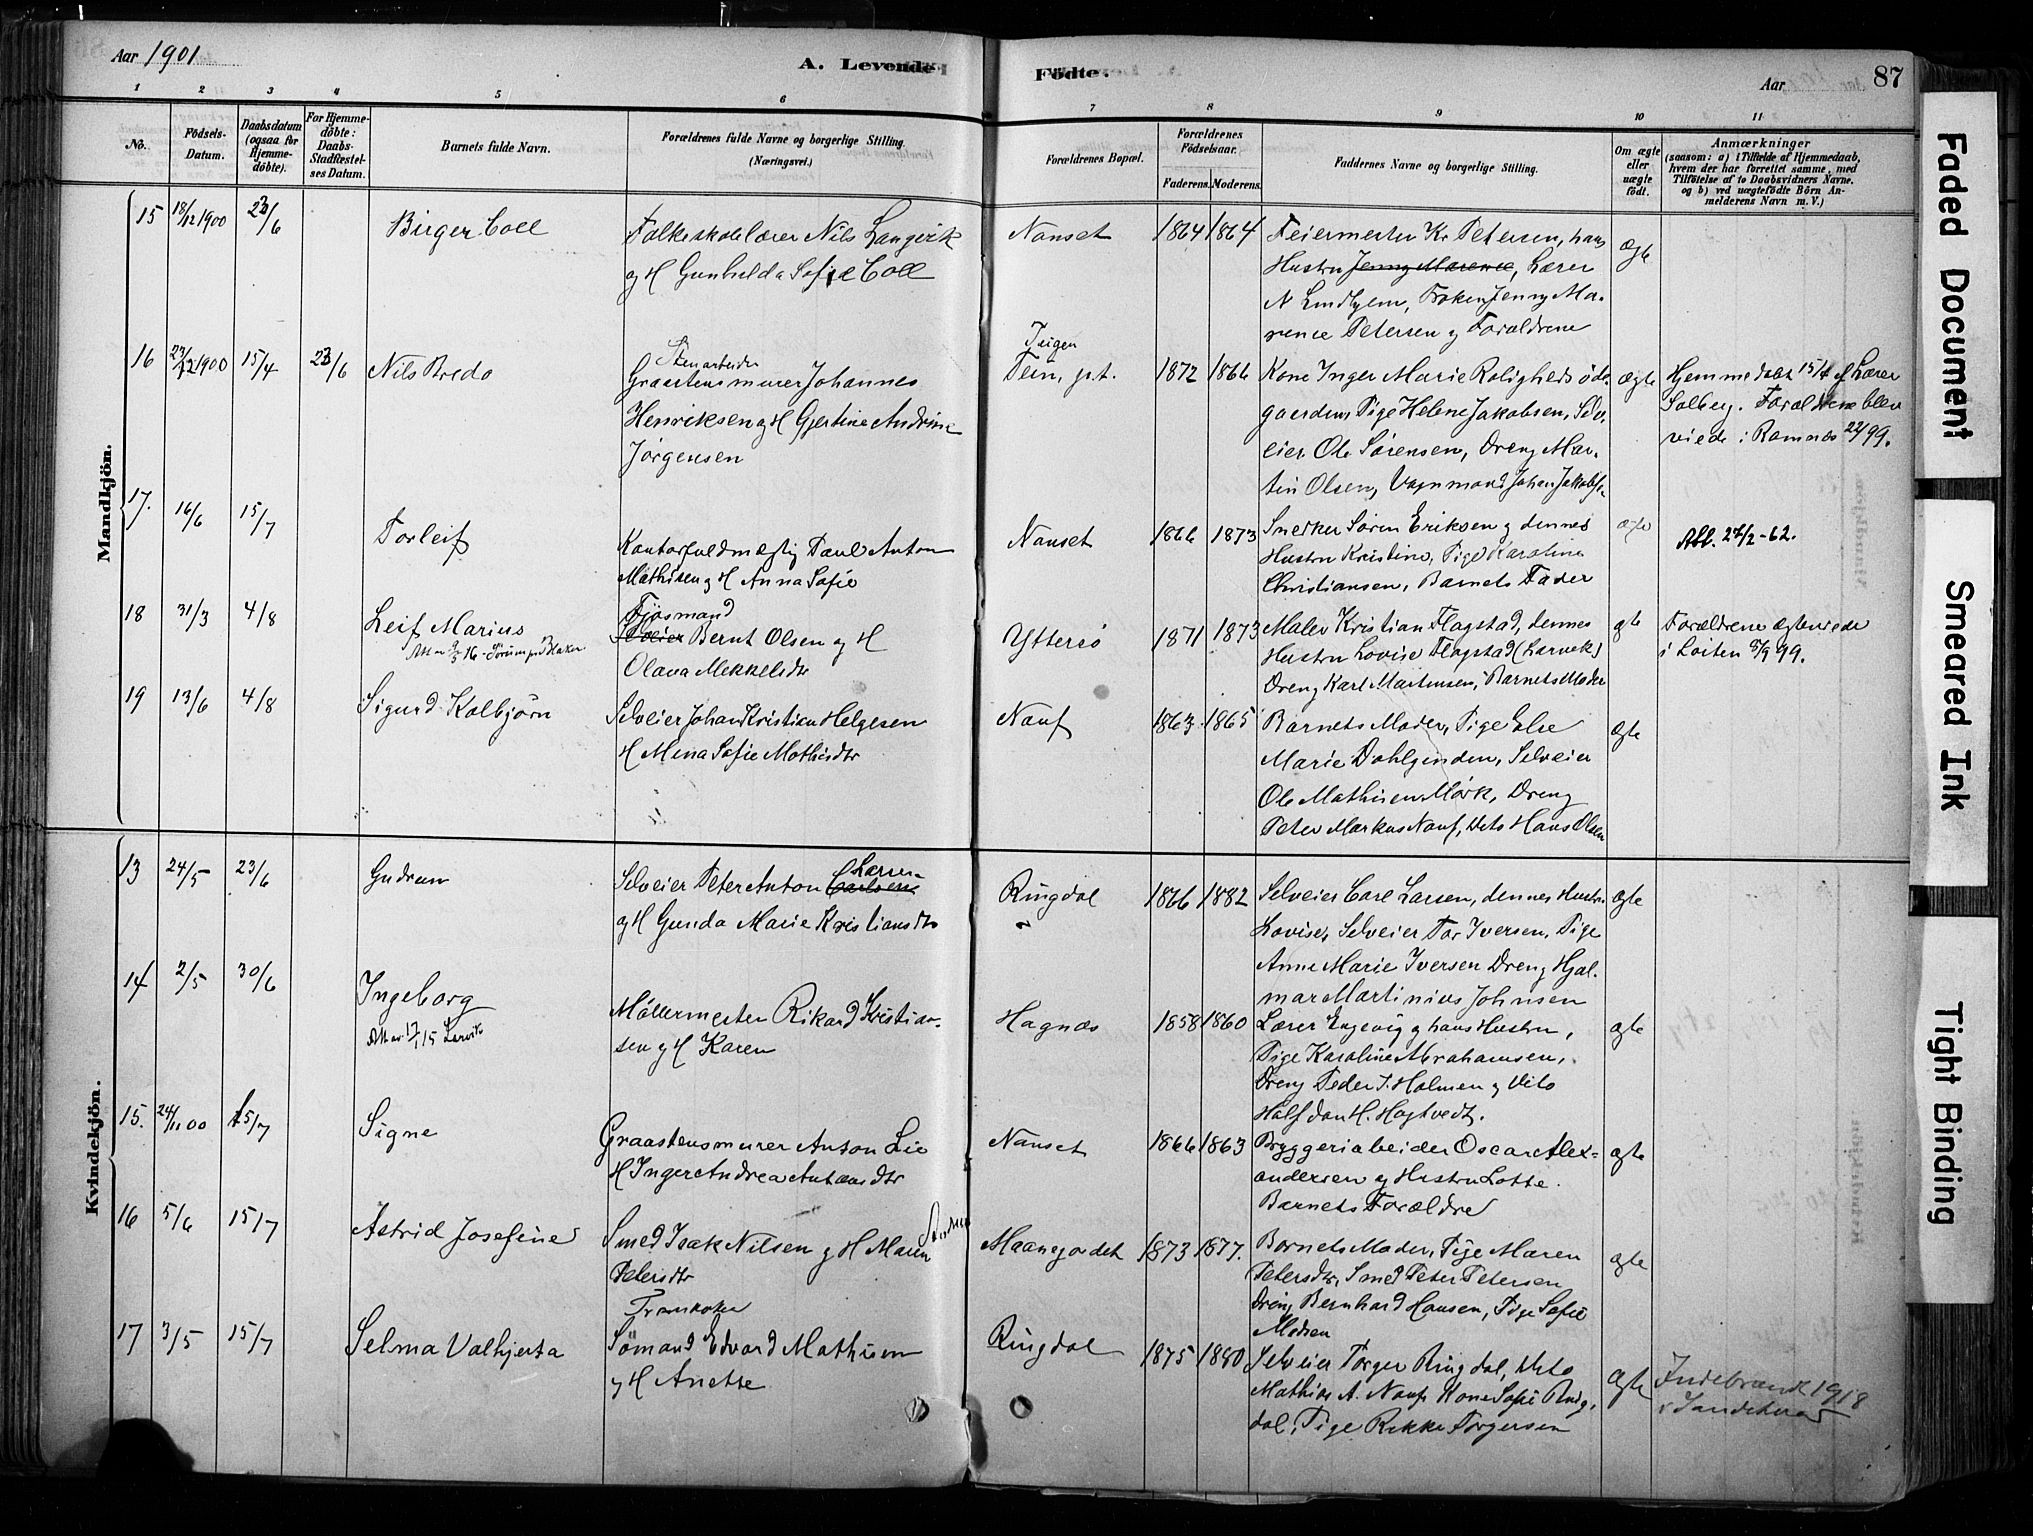 Aar 1901
A. Levende Fødte.
Aar
87
1 2 3 4 5 6 7 8 9 10 11
No.
Födsels-Datum.
Daabsdatum (ogsaa for Hjemmedöbte).
For Hjemmedöbte: Daabs-Stadfæstelses Datum.
Barnets fulde Navn.
Forældrenes fulde Navne og borgerlige Stilling. (Næringsvei.)
Forældrenes Bopæl.
Forældrenes Födselsaar.
Faderens. Moderens.
Faddernes Navne og borgerlige Stilling.
Om ægte eller uægte födt.
Anmærkninger
(saasom: a) i Tilfælde af Hjemmedaab, hvem der har forrettet samme, med Tilföielse af to Daabsvidners Navne, og b) ved uægtefödte Börn Anmelderens Navn m. V.)
Mandkjön.
15 18/12 1900 23/6 Birger Coll
Folkeskolelærer Nils Langvik
og H Gunhilda Sofie Coll
Nanset 1864 1864
Feiermester Kr Petersen, hans
Hustru Jenny Marence, Lærer
N Lindhjem, Frøken Jenny Ma-
rence Petersen og Forældrene
ægte
16 27/12 1900 15/4 23/6 Nils Bredo
Stenarbeider
Graastensmurer Johannes
Henriksen og H Gjertine Andrine
Jørgensen
Tein, p.t. 1872 1866
Kone Inger Marie Rolighedsøde-
gaarden Pige Helene Jakobsen, Selv-
eier Ole Sørensen, Dreng Mar-
tin Olsen, Vognmand Johan Jakobsen
ægte
Hjemmedøbt 15/4 af Lærer
Solberg. Forældrene blev
viede i Ramnæs 99.
17. 16/6 15/7 Torleif
Kontorfuldmægtig Paul Anton
Mathisen og H Anna Sofie
Nanset 1866 1873
Snedker Søren Eriksen og dennes
Hustru Kristine, Pige Karoline
Christiansen, Barnets Fader
ægte
Att. 27/2-62.
18 31/3 4/8 Leif Marius
Fjøsmand
Selveier Bernt Olsen og H
Olava Mekkelsdtr
Ytterső 1871 1873
Maler Kristian Flagstad, dennes
Hustru Lovise Flagstad (Larvik)
Dreng Karl Martinsen, Barnets Moder
ægte
Forældrene ægteviede
i Løiten 5/9 99.
19 13/6 4/8 Sigurd Kolbjørn
Selveier Johan Kristian Helgesen
H Mina Sofie Mathisdtr
Nauf 1863 1865
Barnets Moder, Pige Else
Marie Dahlgenden, Selveier
Ole Mathisen Mørk, Dreng
Peter Markus Nauf, dito Hans Olsen
ægte
Kvindekjön.
13 24/5 23/6 Gudrun
Larsen
Selveier Peter Anton Carlsen
og H Gunda Marie Kristiansdtr
Ringdal 1866 1882
Selveier Carl Larsen, dennes Hustru
Lovise, Selveier Tor Iversen, Pige
Anne Marie Iversen Dreng Hjal-
mar Martinius Johnsen
ægte
14 2/5 30/6 Ingeborg
Att av 17/1 15 Larvik
Møllermester Rikard Kristian-
sen og H Karen
Hagnæs 1858 1860
Lærer Engevig og hans Hustru,
Pige Karoline Abrahamsen,
Dreng Peder J. Holmen og dito
Halfdan H. Hagtvedt.
ægte
15. 24/11 00 15/7 Signe
Graastensmurer Anton Lie
H Inger Andrea Antonsdtr
Nanset 1866 1863
Bryggeriarbeider Oscar Alex-
andersen og Hustru Lotte.
Barnets Forældre
ægte
16 5/6 15/7 Astrid Josefine
Smed Isak Nilsen og H Maren
Petersdtr
Maanejordet 1873 1877.
Barnets Moder, Pige Maren
Petersdtr, Smed Peter Petersen,
Dreng Bernhard Hansen, Pige Sofie
Madsen
ægte
17 3/5 15/7 Selma Valhjerta
Trankoker
Sømand Edvard Mathisen
og H Anette
Ringdal 1875 1880
Selveier Torger Ringdal, dito
Mathias A. Nauf, Kone Sofie Ring-
dal, Pige Rikke Torgersen
ægte
Indebrændt 1918
i Sandeherad
Faded Document
Smeared Ink
Tight Binding